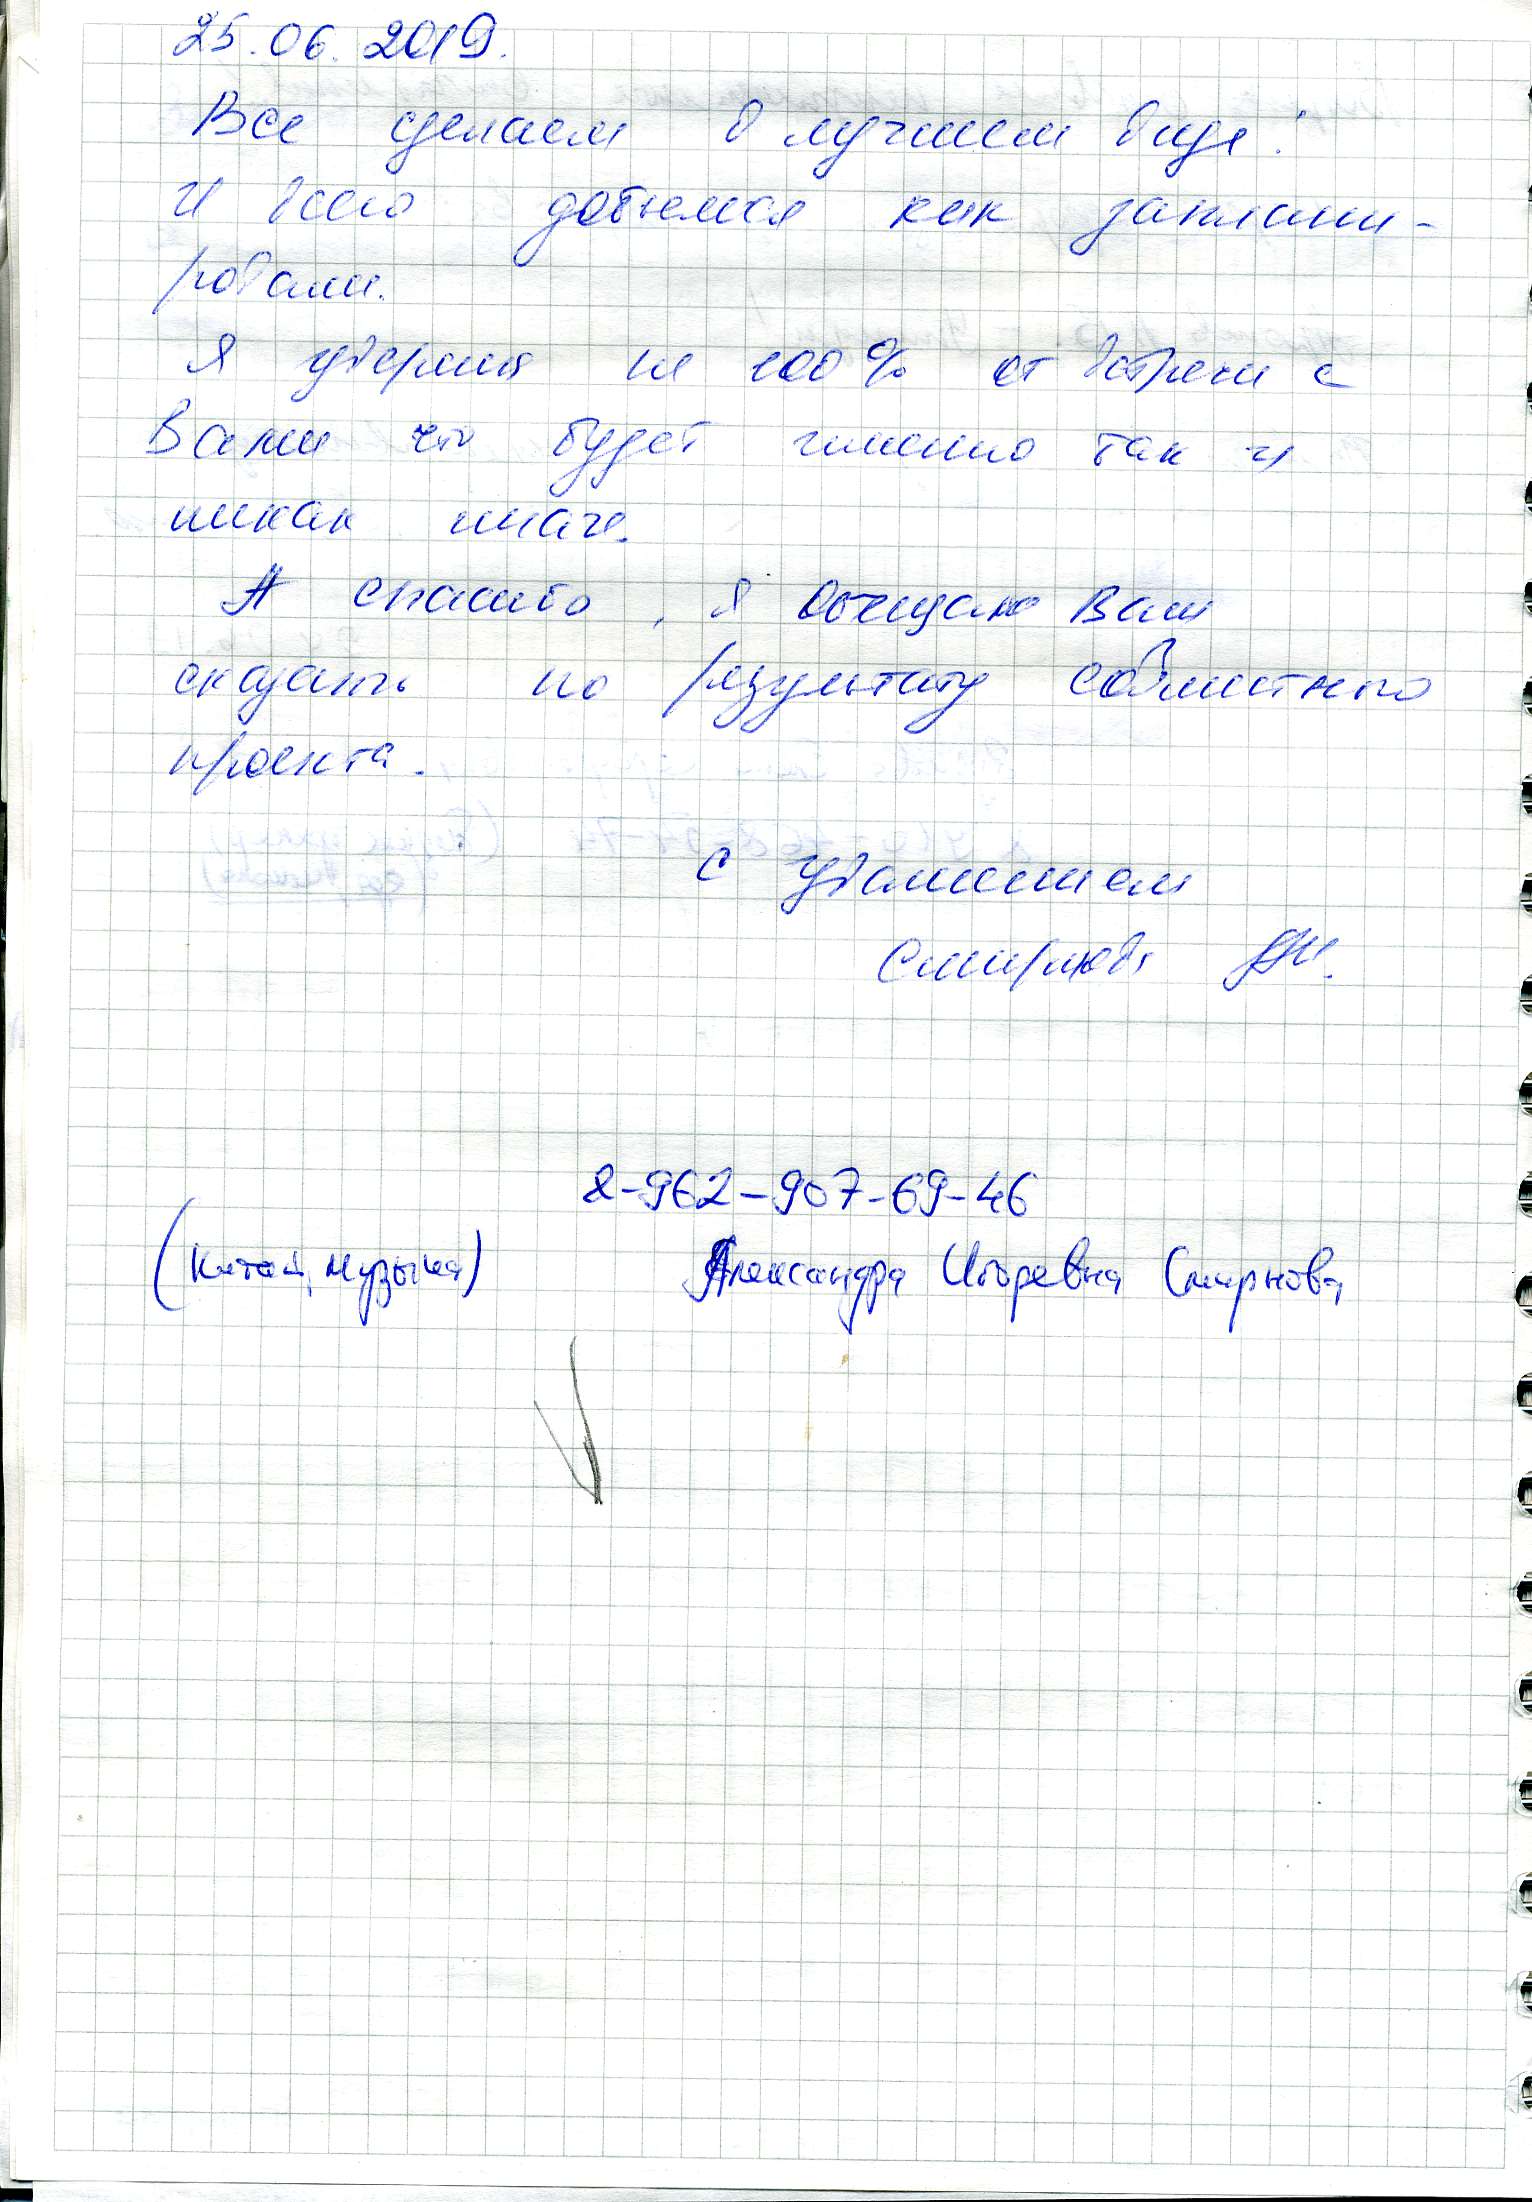 25.06.2019.
Все сделаем в лучшем виде!
И всего добьемся как заплани-
ровали.
Я уверена на 100% от встречи с
Вами что будет именно так и
никак иначе.
А спасибо, я обещаю Вам
сказать по результату совместного
проекта.
С уважением
Смирнова
8-962-907-69-46
(Китай, музыка) Александра Игоревна Смирнова